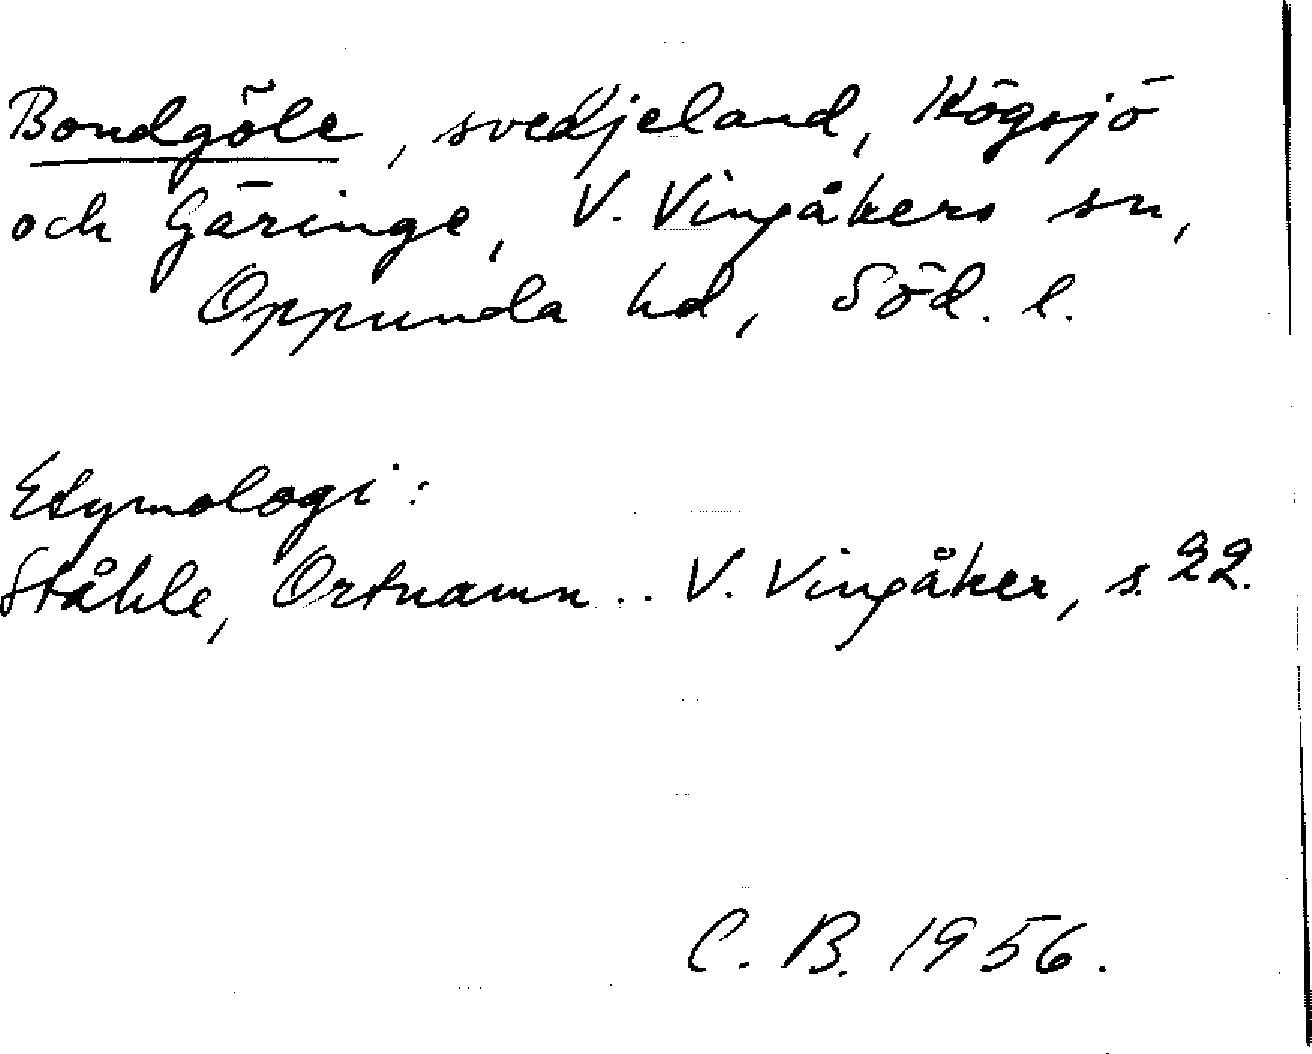 Bondgöle, svedjeland, Högsjö
och Gäringe, V. Vingåkers sn,
Oppunda hd, Söd. l.
Etymologi:
Ståhle, Ortnamn .. V. Vingåker, s. 22.
C. B. 1956.